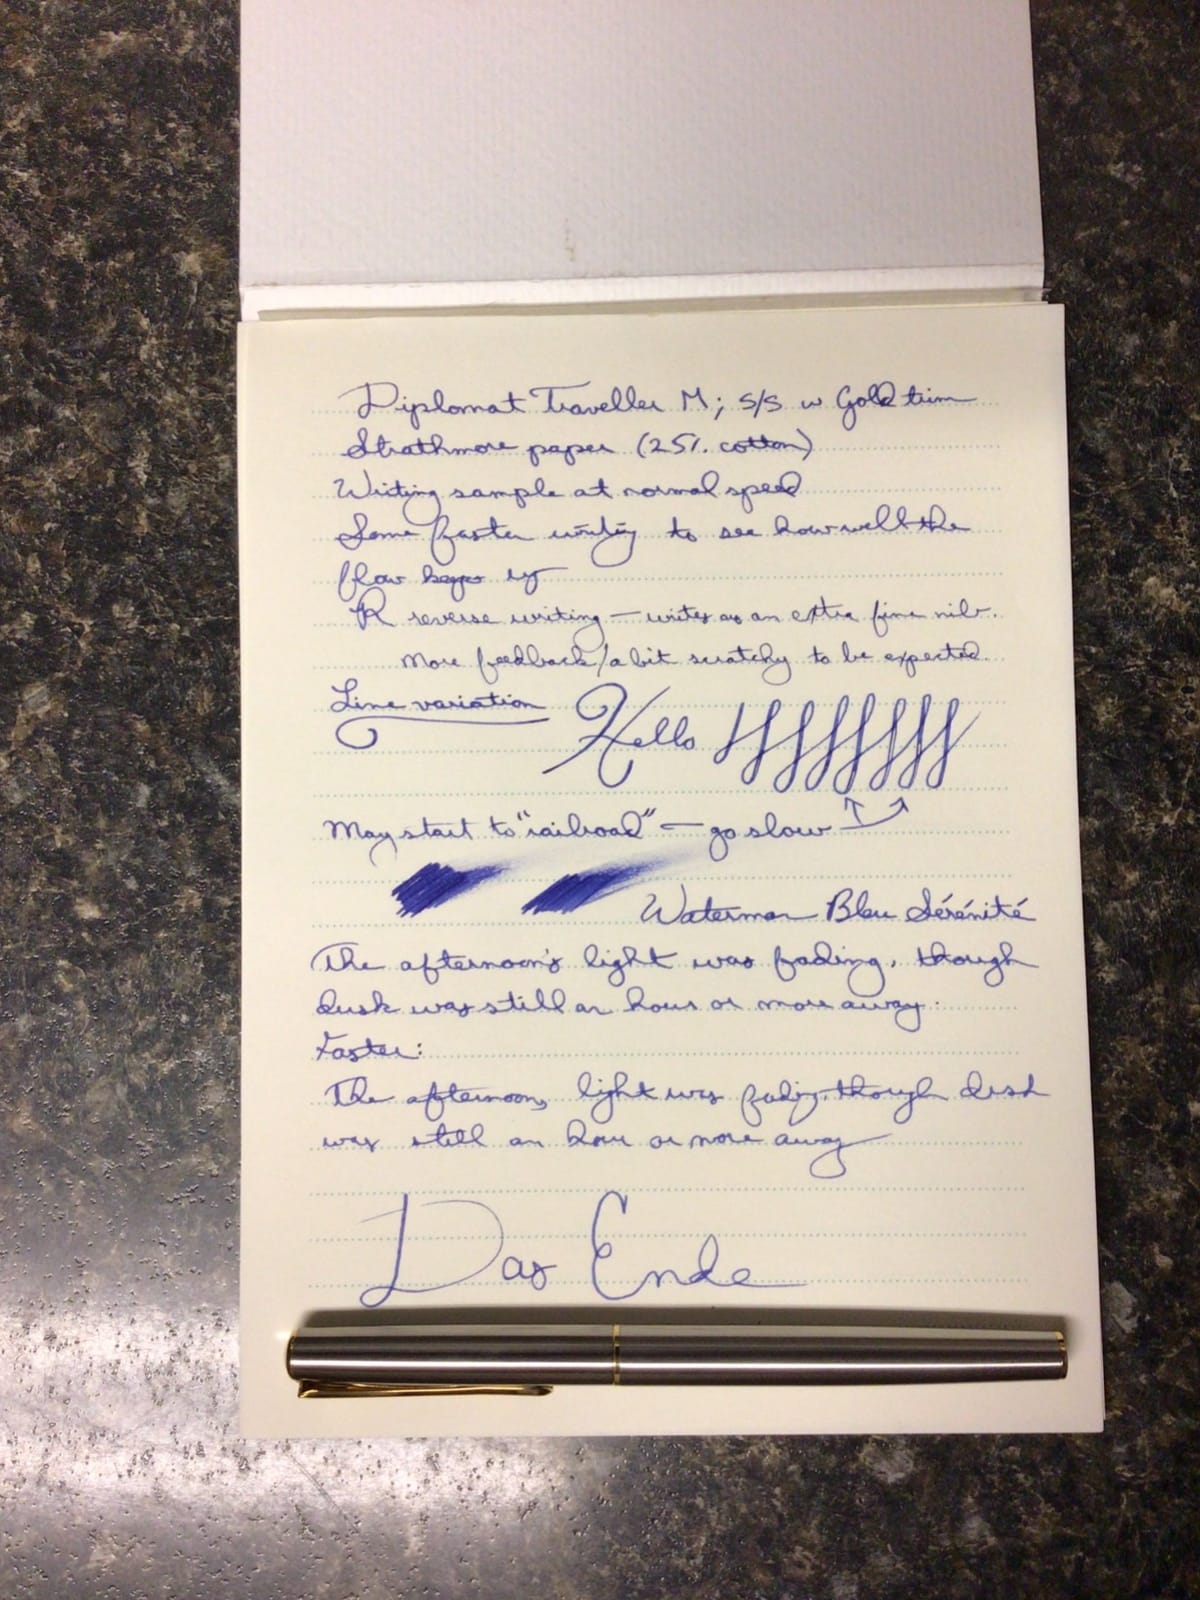 Diplomat Traveller M; S/S w Gold trim
Strathmore paper (25% cotton)
Writing sample at normal speed
Some faster writing to see how well the
flow keeps up
R reverse writing — writes as an extra fine nib.
More feedback/a bit scratchy to be expected.
Line variation Hello
May start to "railroad" — go slow
Waterman Bleu Sérénité
The afternoon's light was fading, though
dusk was still an hour or more away.
Faster:
The afternoons light was fading, though dusk
was still an hour or more away
Das Ende